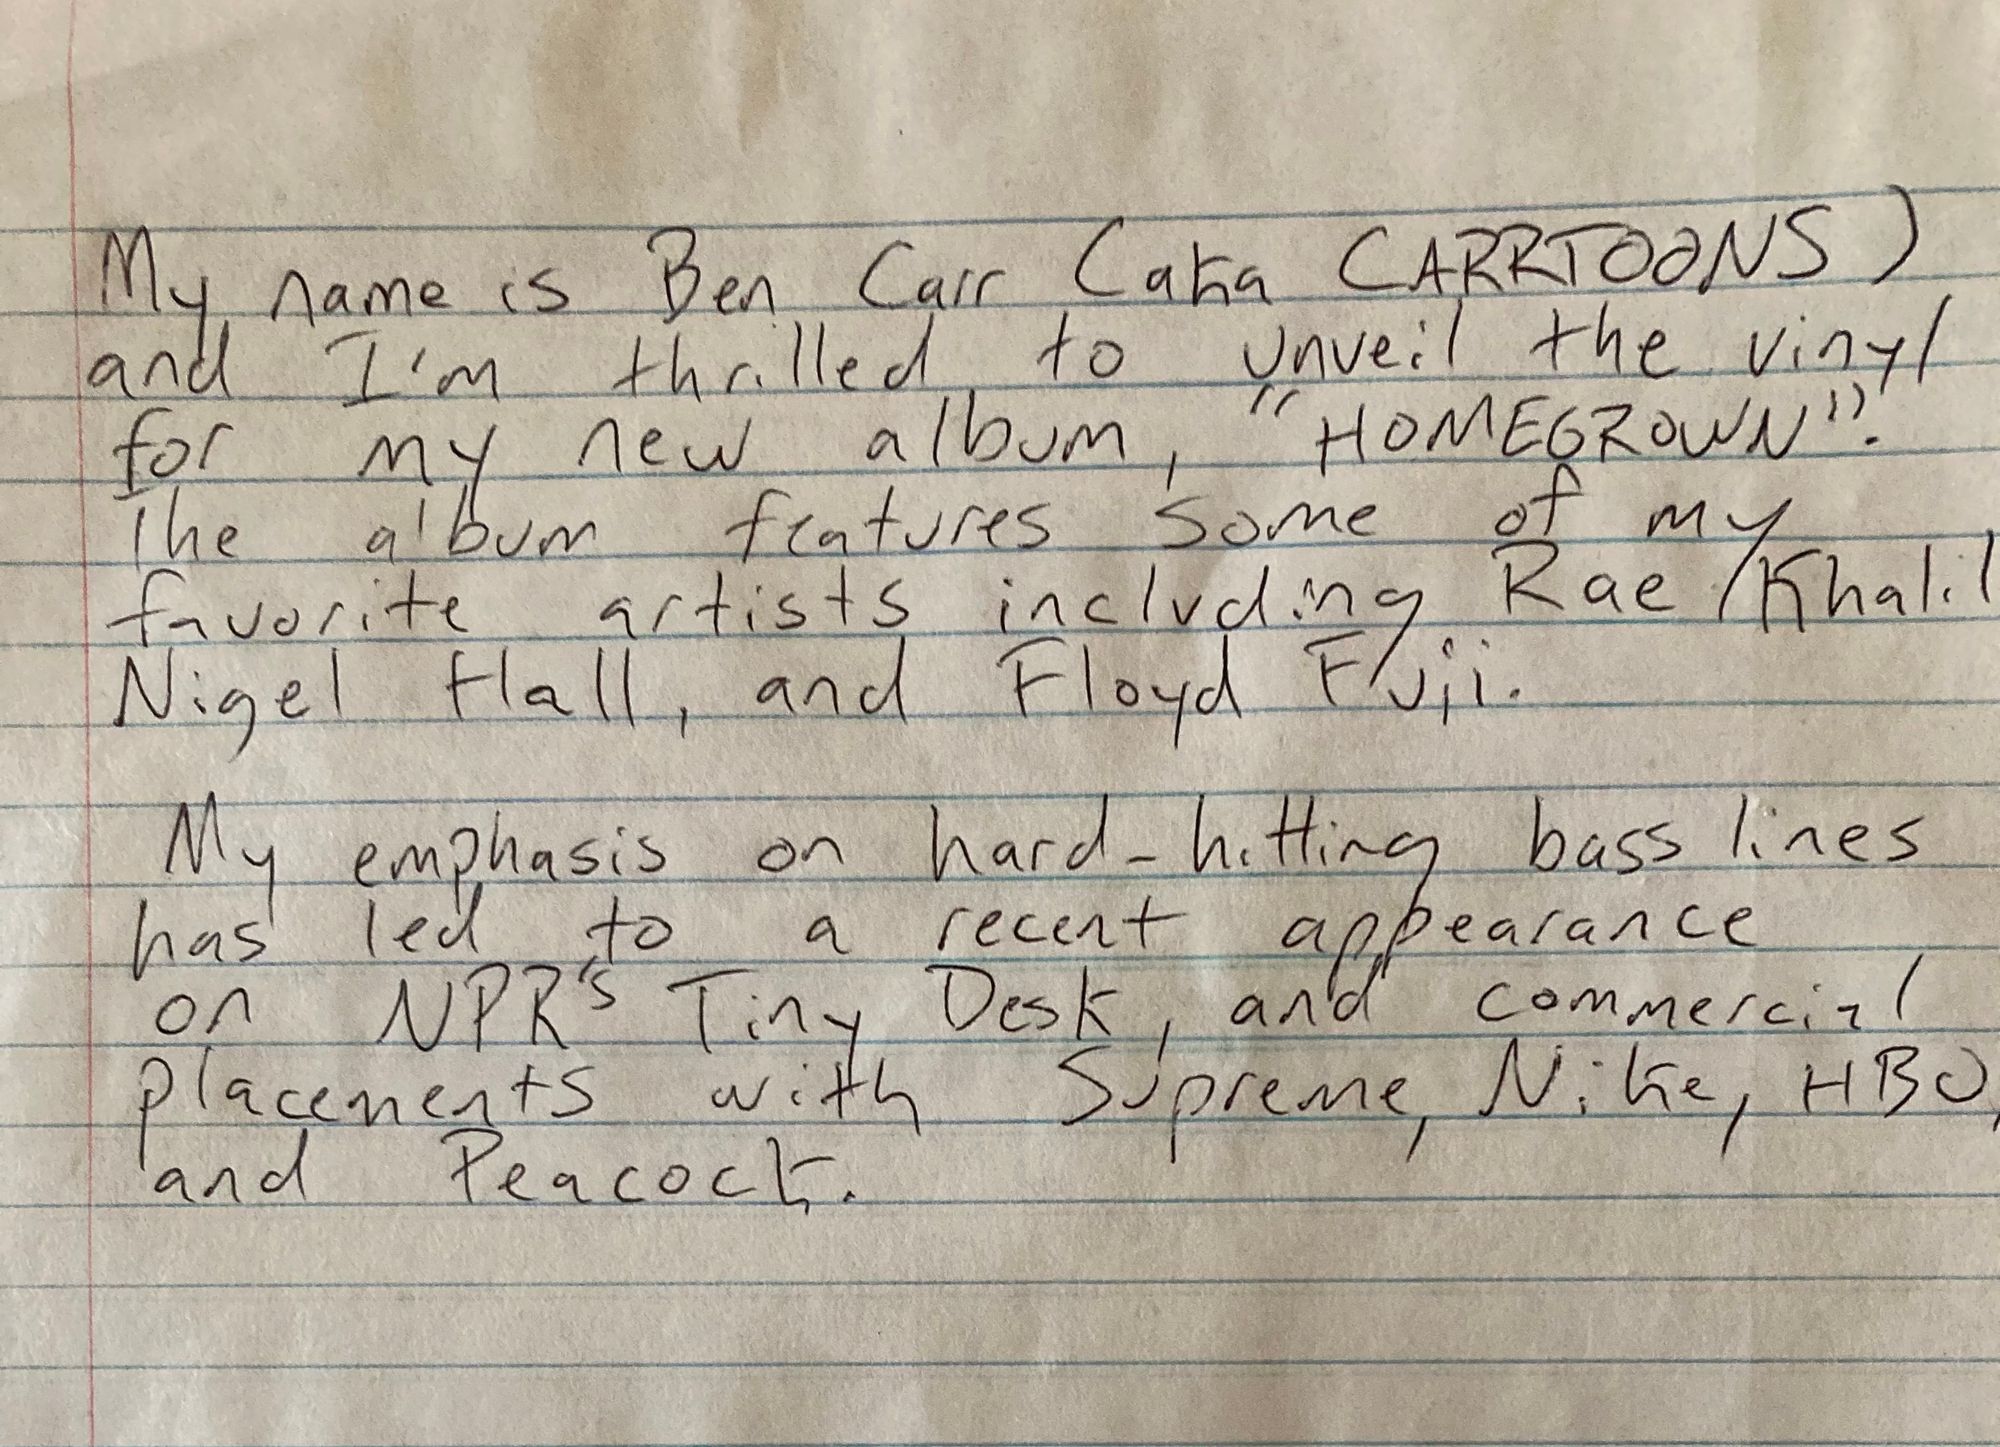 My name is Ben Carr (aka CARRTOONS)
and I'm thrilled to unveil the vinyl
for my new album, "HOMEGROWN".
The album features some of my
favorite artists including Rae Khalil
Nigel Hall, and Floyd Fuji.
My emphasis on hard-hitting bass lines
has led to a recent appearance
on NPR's Tiny Desk, and commercial
placements with Supreme, Nike, HBO,
and Peacock.